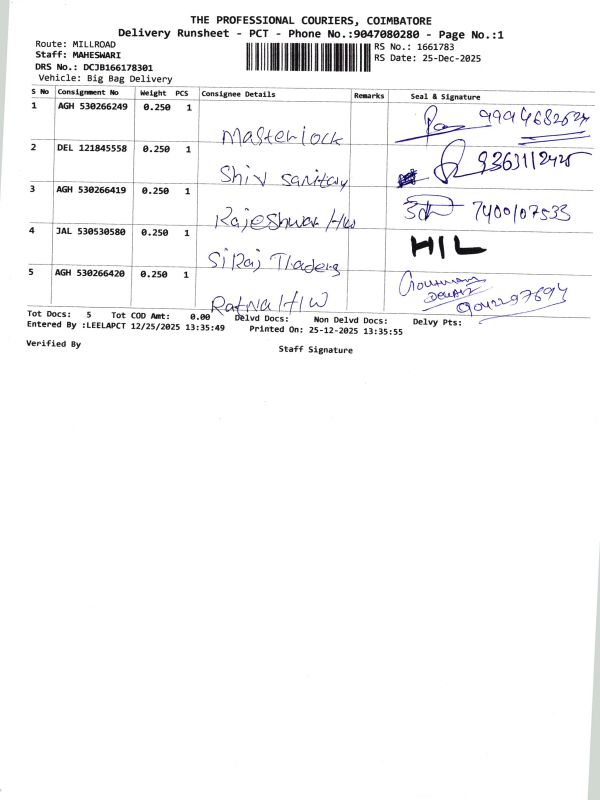 THE PROFESSIONAL COURIERS, COIMBATORE
Delivery Runsheet - PCT - Phone No.:9047080280 - Page No.:1
Route: MILLROAD
RS No.: 1661783
Staff: MAHESWARI
RS Date: 25-Dec-2025
DRS No.: DCJB166178301
Vehicle: Big Bag Delivery
S No Consignment No Weight PCS Consignee Details Remarks Seal & Signature
1 AGH 530266249 0.250 1 Masterlock
2 DEL 121845558 0.250 1 Shiv sanitary
3 AGH 530266419 0.250 1 Rajeshwar H/w 7400107533
4 JAL 530530580 0.250 1 Siraj Traders HIL
5 AGH 530266420 0.250 1 Ratna H/W
Tot Docs: 5 Tot COD Amt: 0.00 Delvd Docs: Non Delvd Docs: Delvy Pts:
Entered By :LEELAPCT 12/25/2025 13:35:49 Printed On: 25-12-2025 13:35:55
Verified By
Staff Signature